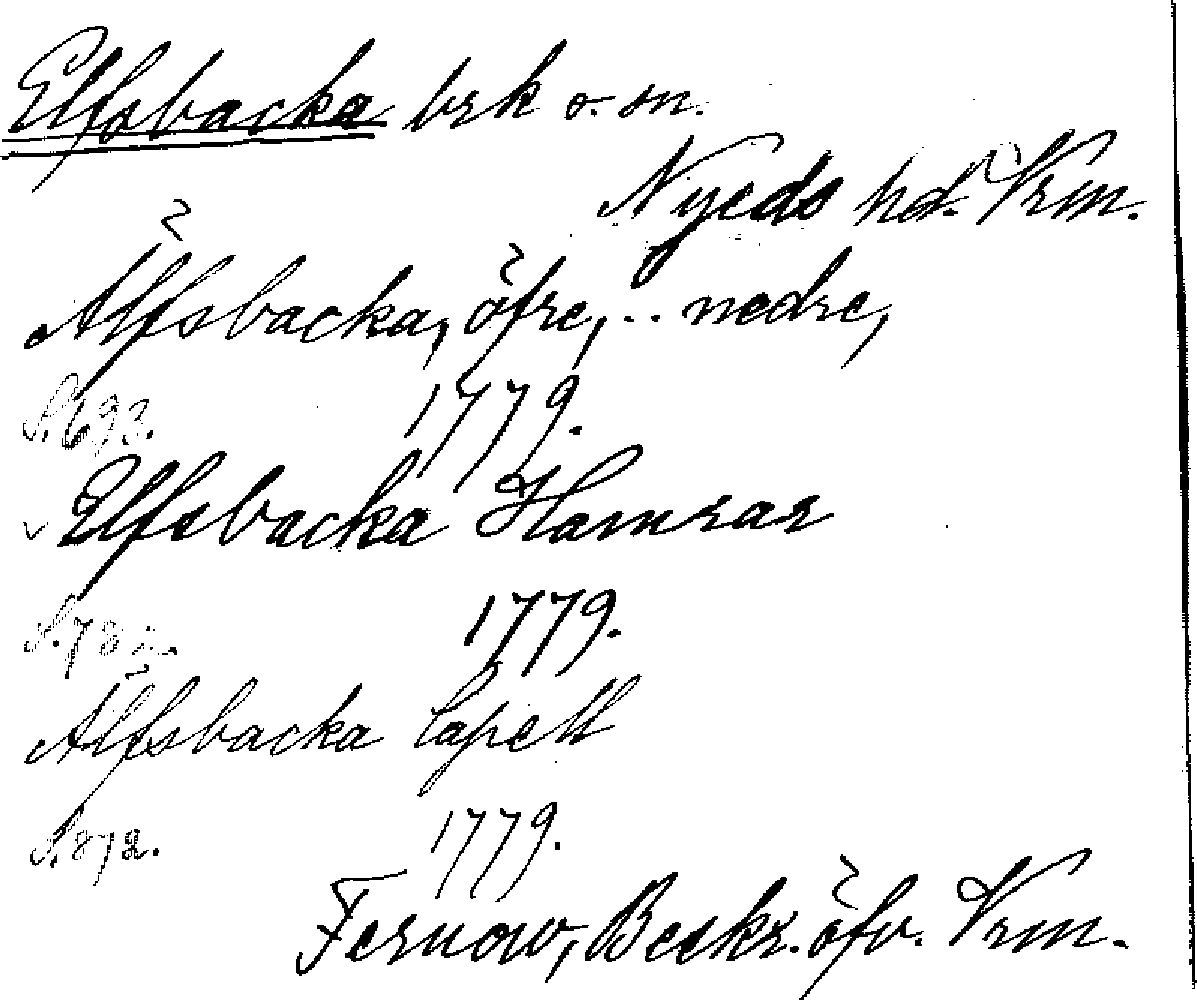 Elfsbacka brk o. sn.
Nyeds hd. Vrm.
Älfsbacka, öfre, .. nedre,
S. 693. 1779.
Elfsbacka Hamrar
1779.
Älfsbacka Capell
S. 872. 1779.
Fernow, Beskr. öfv. Vrm.